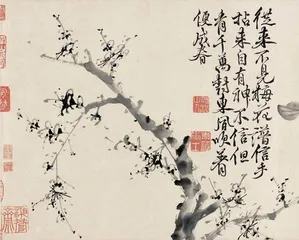 從來不見梅花譜信手
拈来自有神不信但
看千萬樹東風吹著
便成春